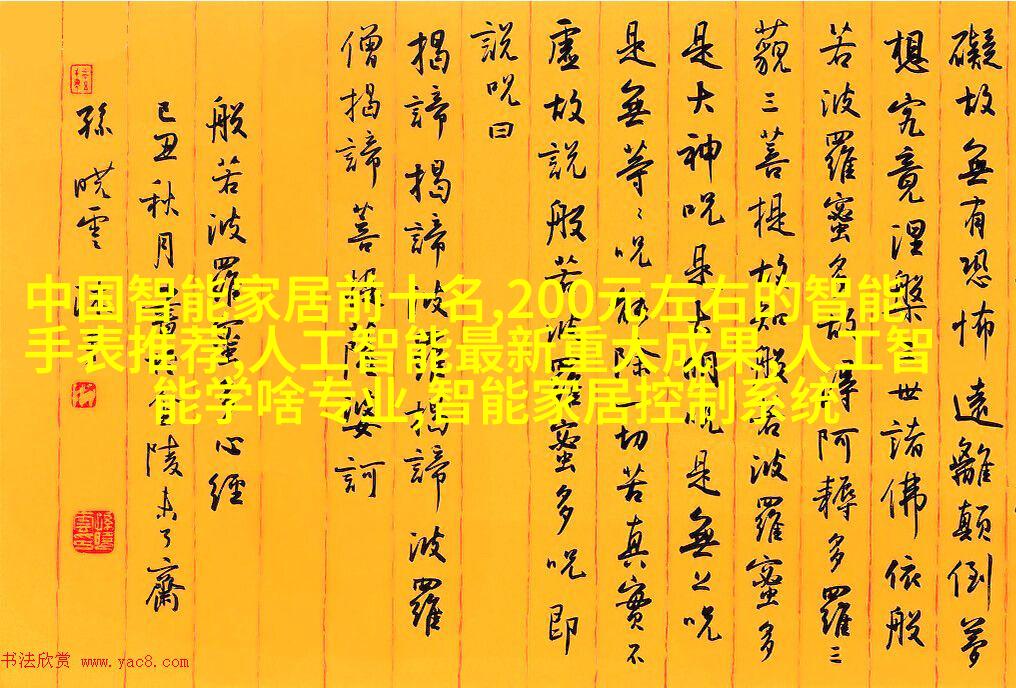 礙故無有恐怖遠離顛倒夢
想究竟涅槃三世諸佛依般
若波羅蜜多故得阿耨多羅三
藐三菩提故知般若波羅蜜多
是大神咒是大明咒是無上咒
是無等〻咒能除一切苦真實不
虛故說般若波羅蜜多咒即
說咒曰
揭諦揭諦波羅揭諦波羅
僧揭諦菩提薩婆訶
般若波羅蜜多心經
己丑秋月金陵未了齋
孫曉雲
中国智能家居前十名,200元左右的智能
手表推荐,人工智能最新重大成果,人工智
能学啥专业,智能家居控制系统
书法欣赏 www.yac8.com